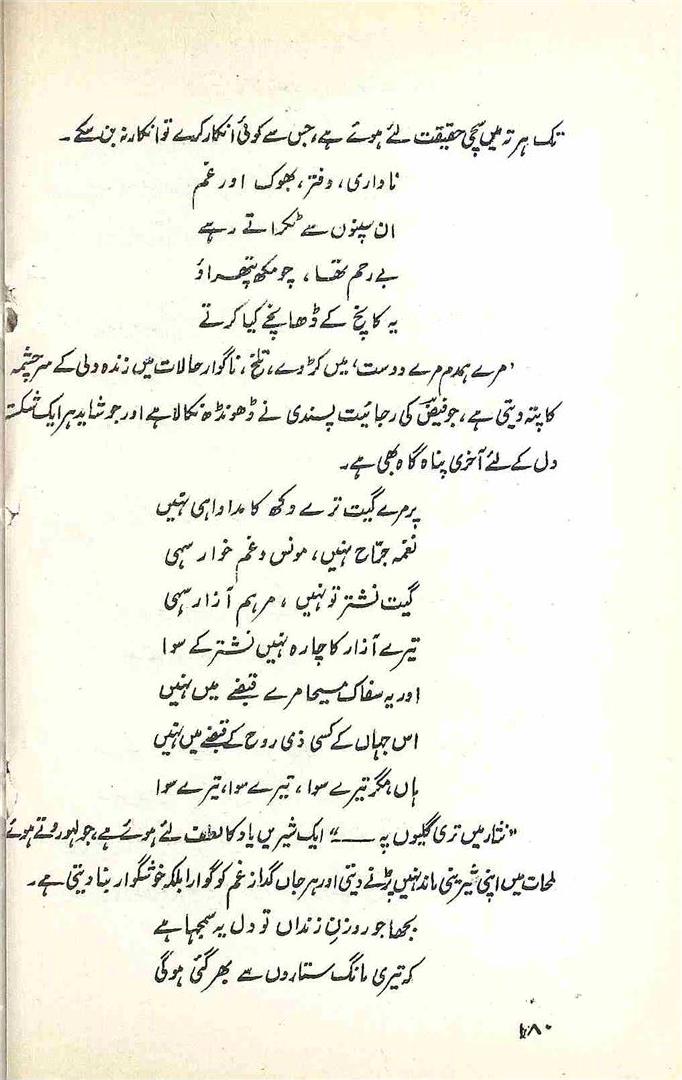 تک ہر تہ میں سچی حقیقت لئے ہوئے ہے، جس سے کوئی انکار کرے تو انکار نہ بن سکے۔
ناداری، دفتر، بھوک اور غم
ان سپنوں سے ٹکراتے رہے
بے رحم تھا، چومکھ پتھراؤ
یہ کانچ کے ڈھانچے کیا کرتے
’مرے ہمدم مرے دوست‘ میں کڑوے، تلخ، ناگوار حالات میں زندہ دلی کے سرچشمہ
کا پتہ دیتی ہے، جو فیضؔ کی رجائیت پسندی نے ڈھونڈھ نکالا ہے اور جو شاید ہر ایک شکستہ
دل کے لئے آخری پناہ گاہ بھی ہے۔
پر مرے گیت ترے دکھ کا مداوا ہی نہیں
نغمہ جرّاح نہیں، مونس و غم خوار سہی
گیت نشتر تو نہیں، مرہم آزار سہی
تیرے آزار کا چارہ نہیں نشتر کے سوا
اور یہ سفاک مسیحا مرے قبضے میں نہیں
اس جہاں کے کسی ذی روح کے قبضے میں نہیں
ہاں مگر تیرے سوا، تیرے سوا، تیرے سوا
”نثار میں تری گلیوں پہ ـــــ“ ایک شیریں یاد کا لطف لئے ہوئے ہے، جو لہو روتے ہوئے
لمحات میں اپنی شیرینی ماند نہیں پڑنے دیتی اور ہر جاں گداز غم کو گوارا بلکہ خوشگوار بنا دیتی ہے۔
بجھا جو روزنِ زنداں تو دل یہ سمجھا ہے
کہ تیری مانگ ستاروں سے بھر گئی ہوگی
۱۸۰